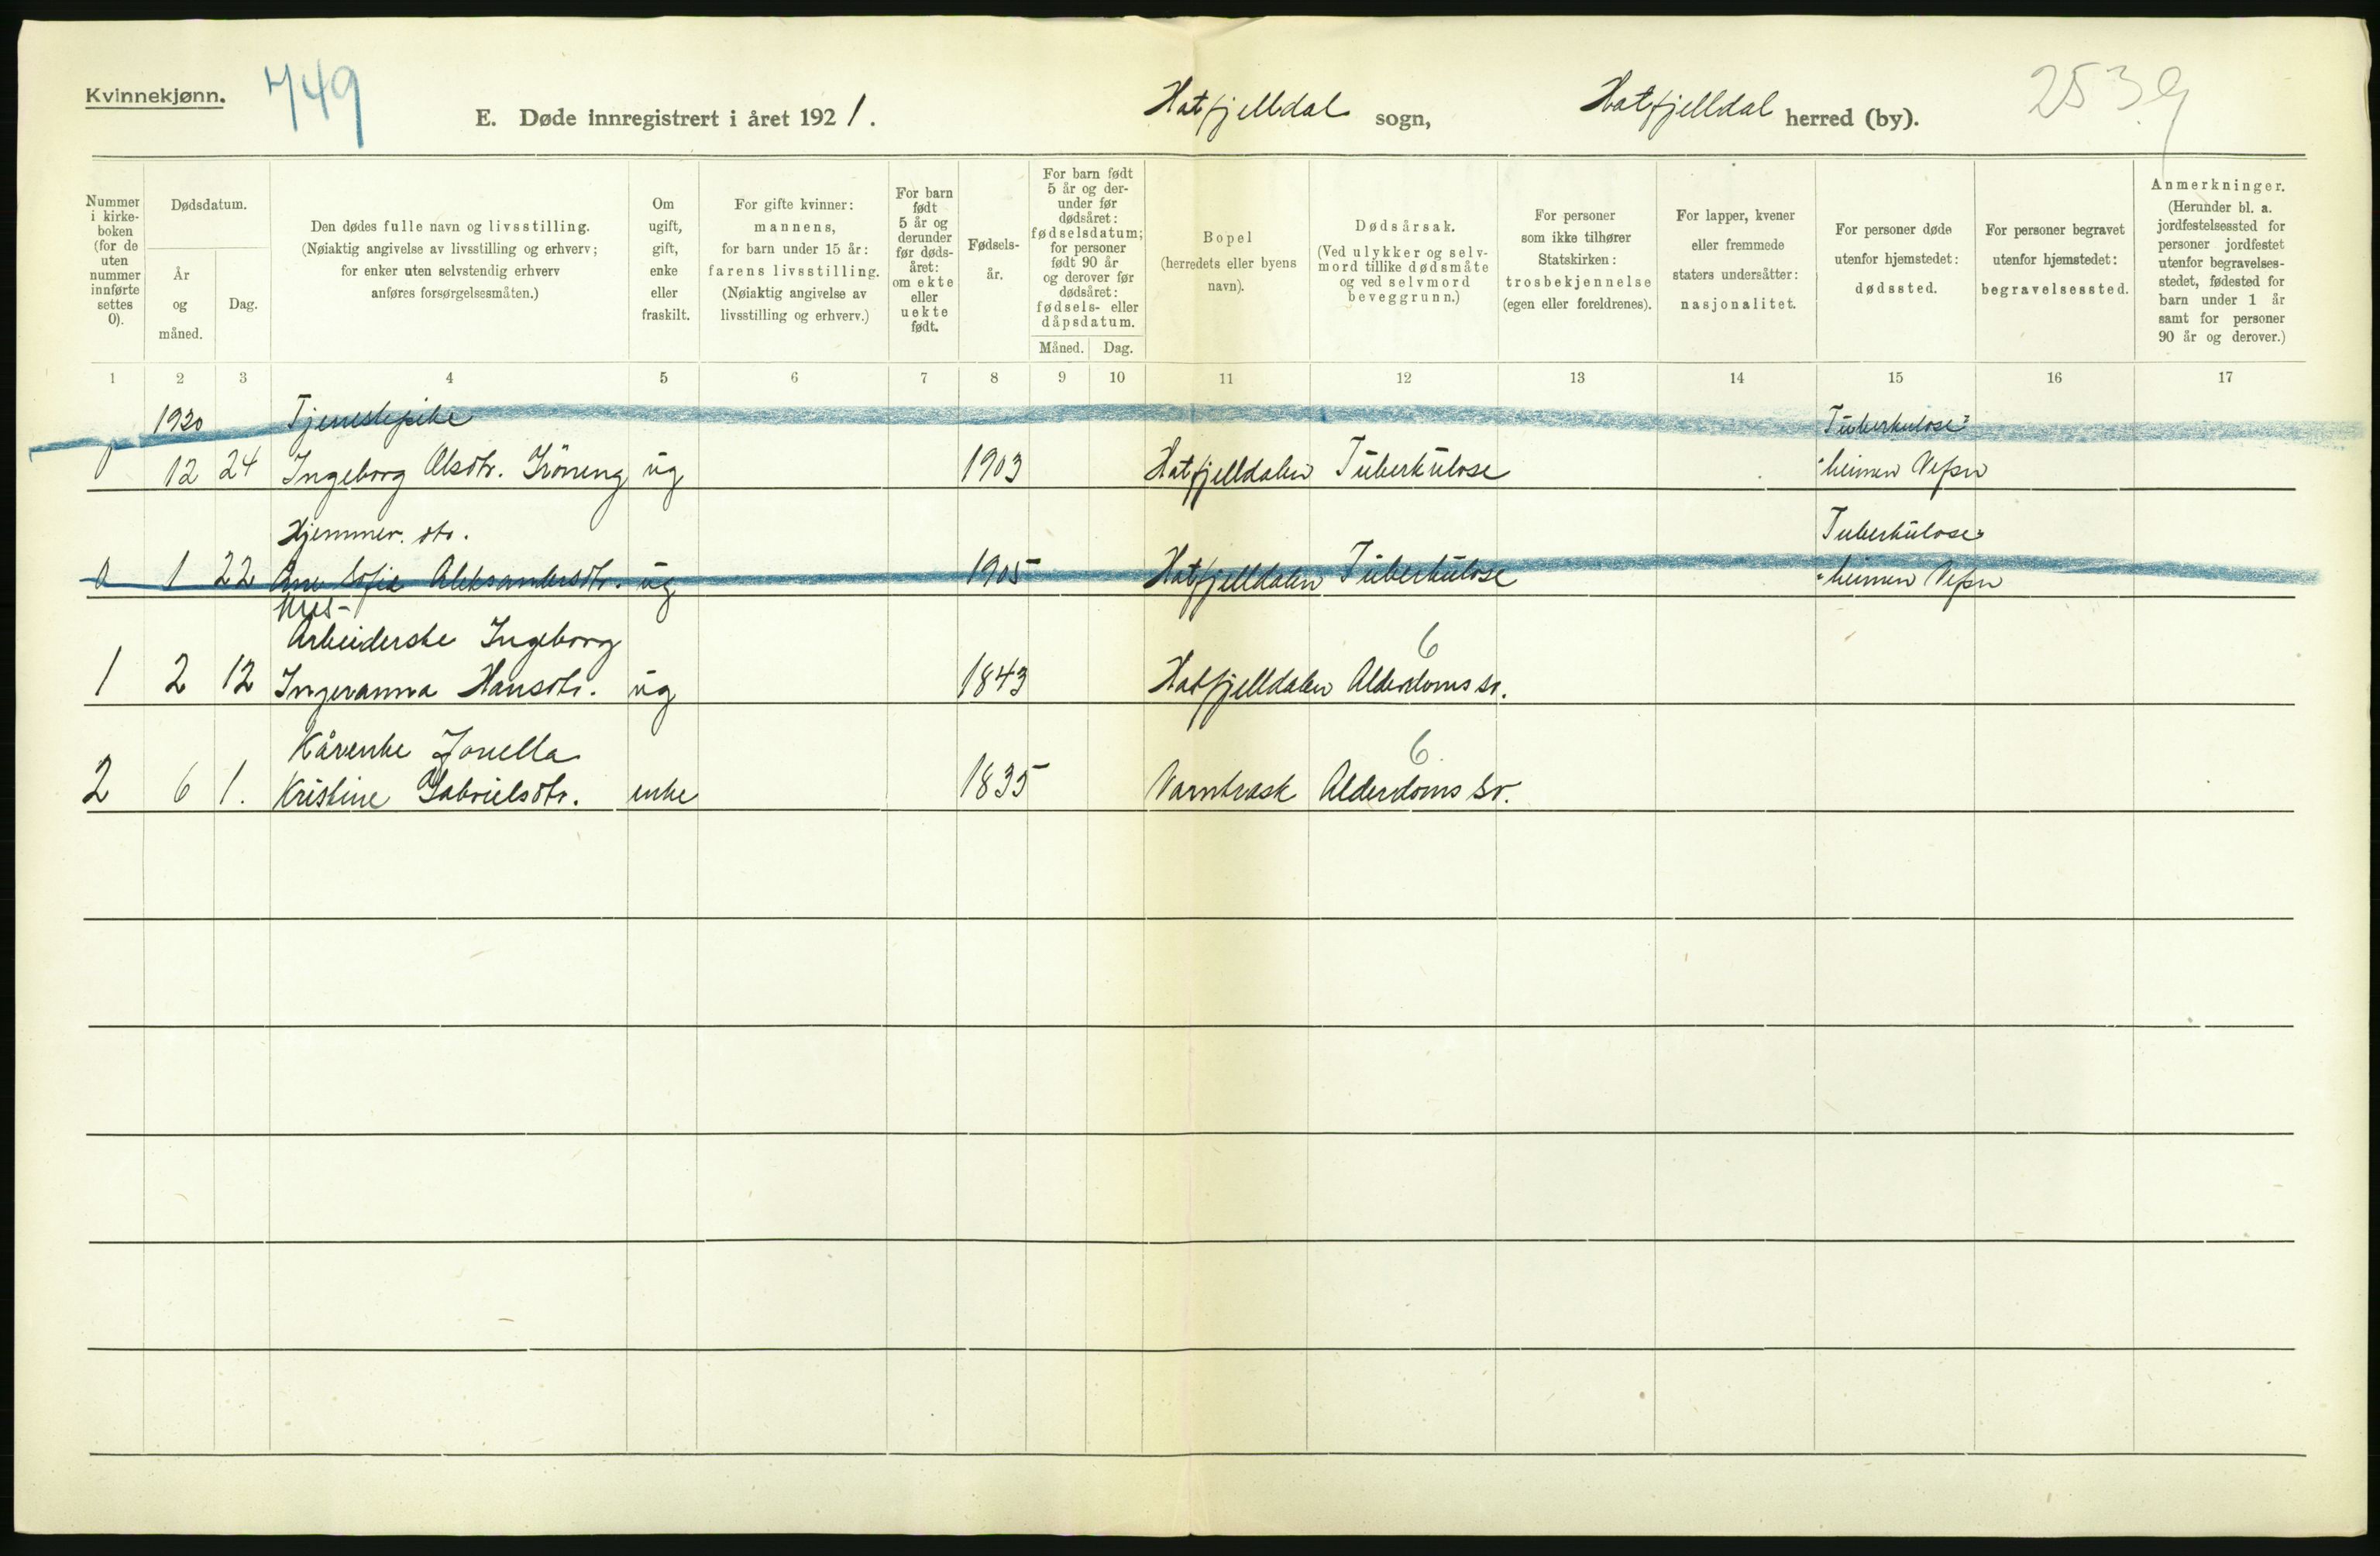 Kvinnekjønn.
749
E. Døde innregistrert i året 1921.
Hatfjelldal sogn,
Hatfjelldal herred (by).
2539
Nummer i kirke- boken (for de uten nummer innførte settes 0).
Dødsdatum.
År og måned.
Dag.
Den dødes fulle navn og livsstilling.
(Nøiaktig angivelse av livsstilling og erhverv;
for enker uten selvstendig erhverv
anføres forsørgelsesmåten.)
Om ugift, gift, enke eller fraskilt.
For gifte kvinner:
mannens,
for barn under 15 år:
farens livsstilling.
(Nøiaktig angivelse av
livsstilling og erhverv.)
For barn født 5 år og derunder før døds- året: om ekte eller uekte født.
Fødsels- år.
For barn født 5 år og der- under før dødsåret: fødselsdatum; for personer født 90 år og derover før dødsåret: fødsels- eller dåpsdatum.
Måned.
Dag.
Bopel
(herredets eller byens
navn).
Dødsårsak.
(Ved ulykker og selv-
mord tillike dødsmåte
og ved selvmord
beveggrunn.)
For personer
som ikke tilhører
Statskirken:
trosbekjennelse
(egen eller foreldrenes).
For lapper, kvener
eller fremmede
staters undersåtter:
nasjonalitet.
For personer døde
utenfor hjemstedet:
dødssted.
For personer begravet
utenfor hjemstedet:
begravelsessted.
Anmerkninger.
(Herunder bl. a.
jordfestelsessted for
personer jordfestet
utenfor begravelses-
stedet, fødested for
barn under 1 år
samt for personer
90 år og derover.)
1 2 3 4 5 6 7 8 9 10 11 12 13 14 15 16 17
1920 Tjenestepike Tüberkulose=
0 12 24 Ingeborg Olsdtr. Gröneng üg 1903 Hatfjelldalen Tüberkülose heimen Vefsn
Hjemmev. dtr. Tuberkülose=
0 1 22 Ane Sofie Aleksandersdtr. üg 1905 Hatfjelldalen Tüberkülose heimen Vefsn
Arbeiderske Ingeborg 6
1 2 12 Ingeranna Hansdtr. üg 1843 Hatfjelldalen Alderdoms sv.
Kårenke Jonella 6
2 6 1. Kristine Gabrielsdtr. enke 1835 Varntresk Alderdoms sv.